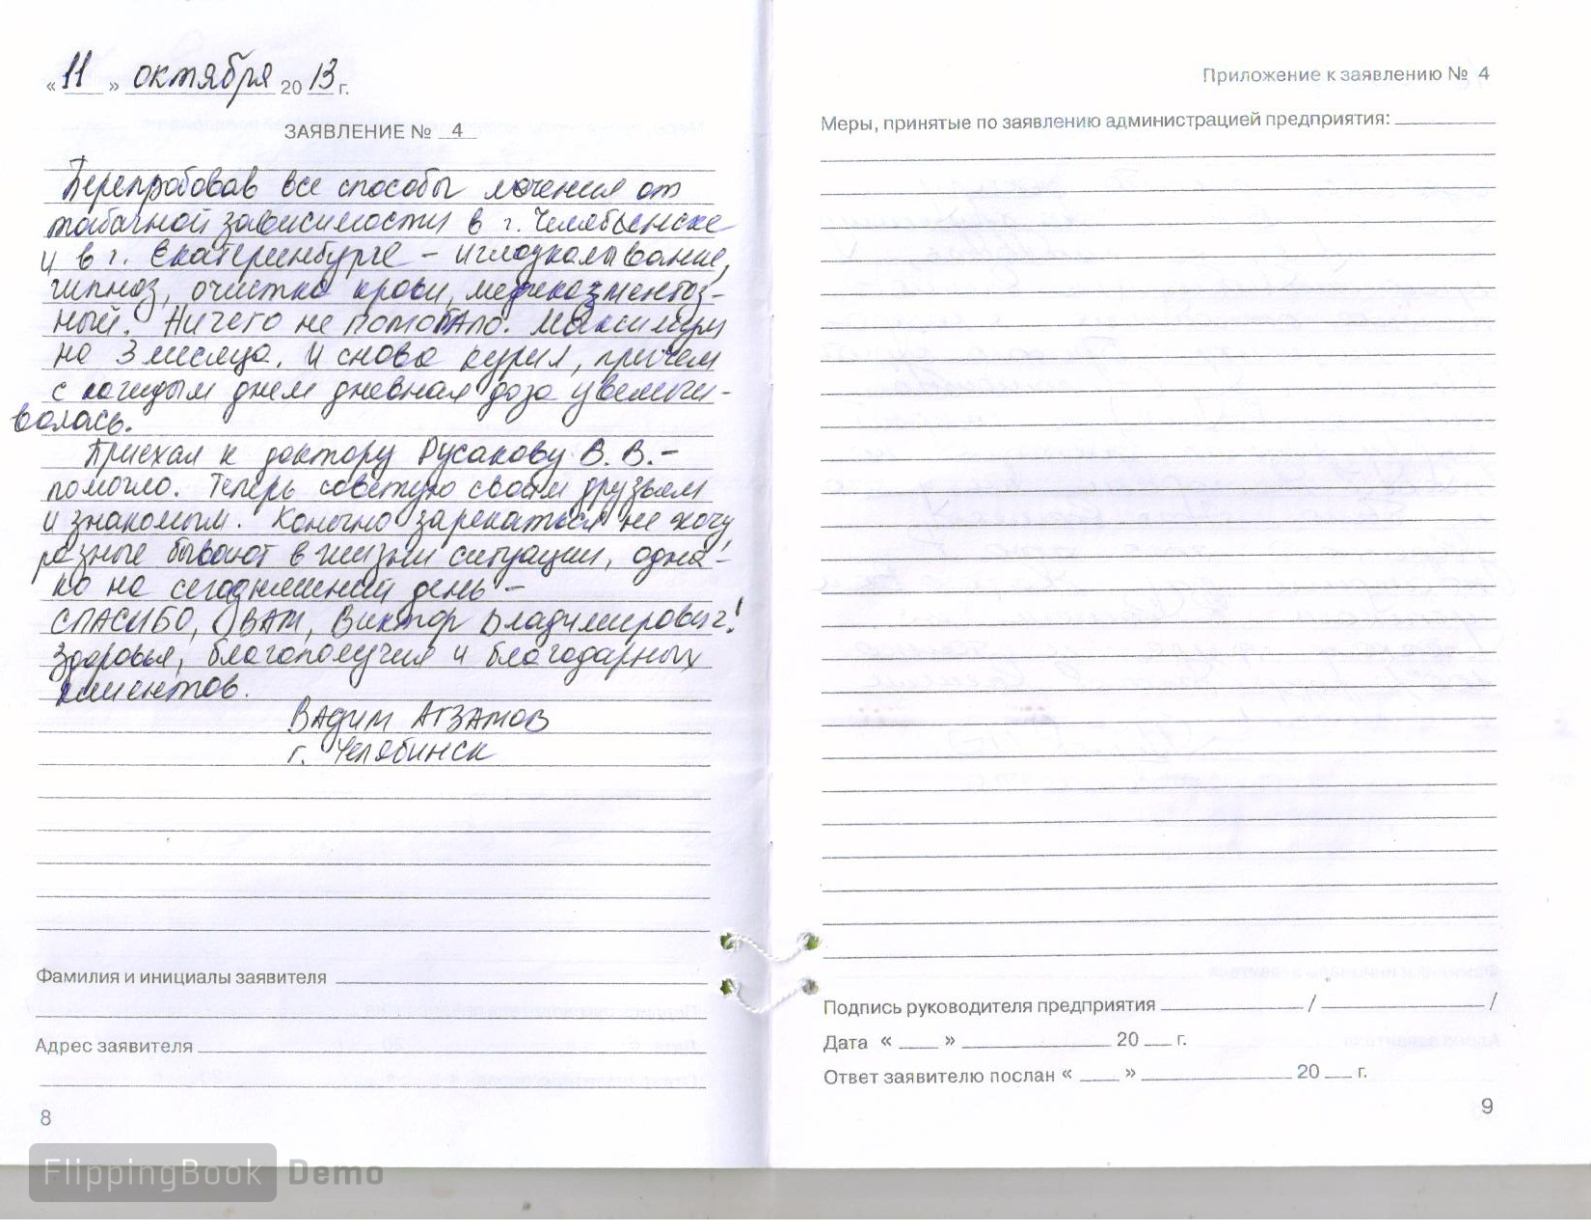 «11» октября 2013 г.
ЗАЯВЛЕНИЕ № 4
Перепробовав все способы лечения от
табачной зависимости в г. Челябинске
и в г. Екатеринбурге – иглоукалывание,
гипноз, очистка крови, медикаментоз-
ный. Ничего не помогало. Максимум
на 3 месяца. И снова курил, причем
с каждым днем дневная доза увеличи-
валась.
Приехал к доктору Русакову В. В. –
помогло. Теперь советую своим друзьям
и знакомым. Конечно зарекаться не хочу,
разные бывают в жизни ситуации, одна-
ко на сегодняшний день –
СПАСИБО, ВАМ, Виктор Владимирович!
Здоровья, благополучия и благодарных
клиентов.
Вадим Агзамов
г. Челябинск
Фамилия и инициалы заявителя
Адрес заявителя
8
Приложение к заявлению № 4
Меры, принятые по заявлению администрацией предприятия:
Подпись руководителя предприятия / /
Дата « » 20 г.
Ответ заявителю послан « » 20 г.
9
FlippingBook Demo